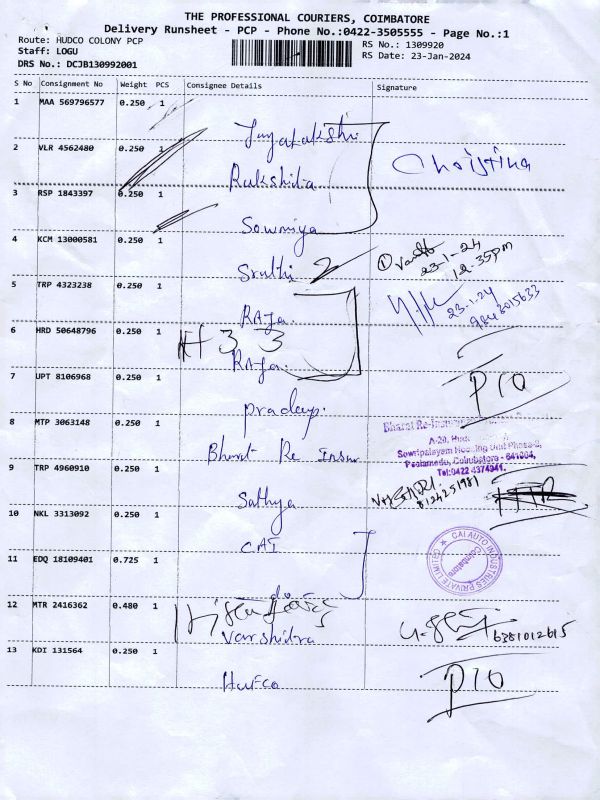 THE PROFESSIONAL COURIERS, COIMBATORE
Delivery Runsheet - PCP - Phone No.:0422-3505555 - Page No.:1
Route: HUDCO COLONY PCP
RS No.: 1309920
Staff: LOGU
RS Date: 23-Jan-2024
DRS No.: DCJB130992001
S No Consignment No Weight PCS Consignee Details Signature
1 MAA 569796577 0.250 1
2 VLR 4562480 0.250 1
Rakshita
Christina
3 RSP 1843397 0.250 1
Sowmiya
4 KCM 13000581 0.250 1
Sruthi 2
23-1-24
12-35pm
5 TRP 4323238 0.250 1
Raja.
23-1-24
9843015633
6 HRD 50648796 0.250 1
# 3 3
Raja.
7 UPT 8106968 0.250 1
Pradeep.
P10
8 MTP 3063148 0.250 1
Bharat Re Insur
Bharat Re-Insurance
A-20,
Sowripalayam Housing Unit Phase-2,
Peelamedu, Coimbatore - 641004,
Tel:0422 4374941.
9 TRP 4960910 0.250 1
Sathya
8124251981
10 NKL 3313092 0.250 1
CAI
CAI AUTO INDUSTRIES PRIVATE LIMITED
Coimbatore
11 EDQ 18109401 0.725 1
do
12 MTR 2416362 0.480 1
Varshitra
6381012615
13 KDI 131564 0.250 1
Hufco
P10